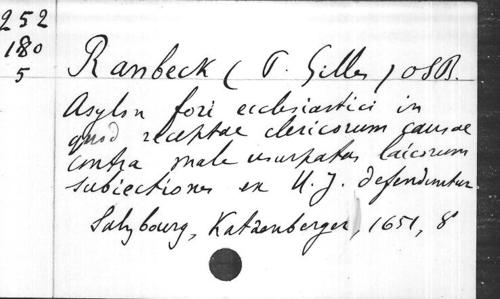 252
180
5
Ranbeck (P. Gilles) OSB.
Asylon fori ecclesiastici in
quod receptae clericorum causae
contra male usurpatas laicorum
subiectiones ex U. J. defenduntur
Salzbourg, Katzenberger, 1651, 8°